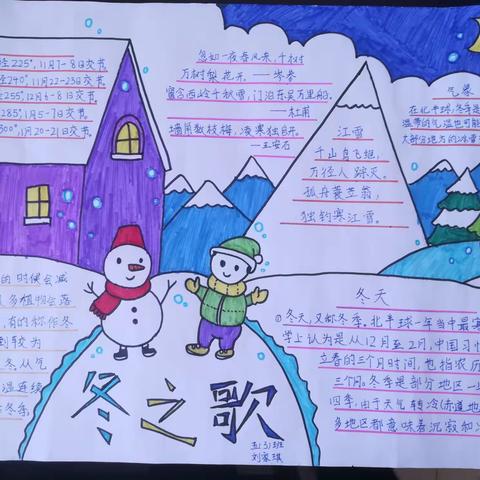 经225°,11月7-8日交节
经240°,11月22-23日交节
经255°,12月6-8日交节
285°,1月5-7日交节
300°,1月20-21日交节
忽如一夜春风来,千树
万树梨花开 —— 岑参
窗含西岭千秋雪,门泊东吴万里船。
——杜甫
墙角数枝梅,凌寒独自开。
——王安石
江雪
千山鸟飞绝,
万径人踪灭。
孤舟蓑笠翁,
独钓寒江雪。
气象
在北半球,冬季是
温带的气温也可能
大部分地方的冰雪
的时候会减
多植物会落
,有的称作冬
到较为
冬从气
温连续
冬季,
冬天
冬天,又称冬季,北半球一年当中最寒
学上认为是从12月至2月,中国习惯
立春的三个月时间,也指农历
三个月。冬季是部分地区一
四季,由于天气转冷(赤道地
多地区都意味着沉寂和冷
冬之歌
五(3)班
刘家琪